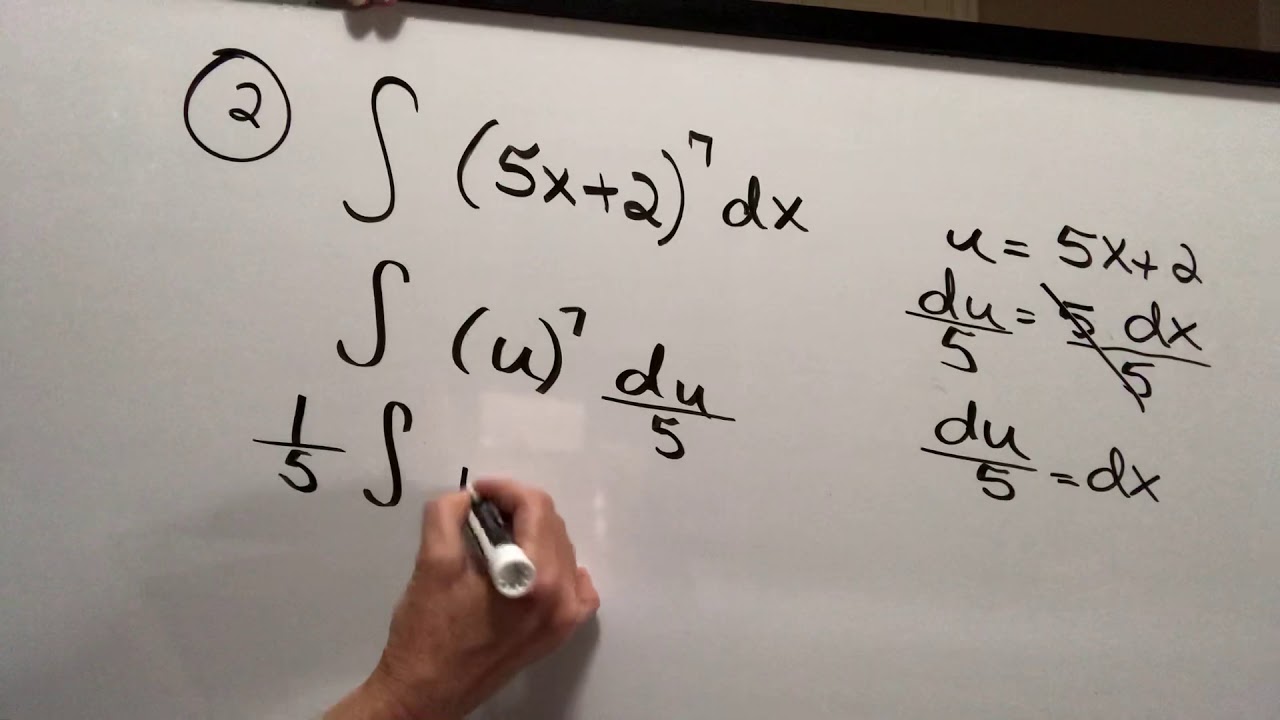 ② ∫ (5x+2)⁷ dx
∫ (u)⁷ du/5
1/5 ∫
u = 5x+2
du/5 = 5 dx/5
du/5 = dx